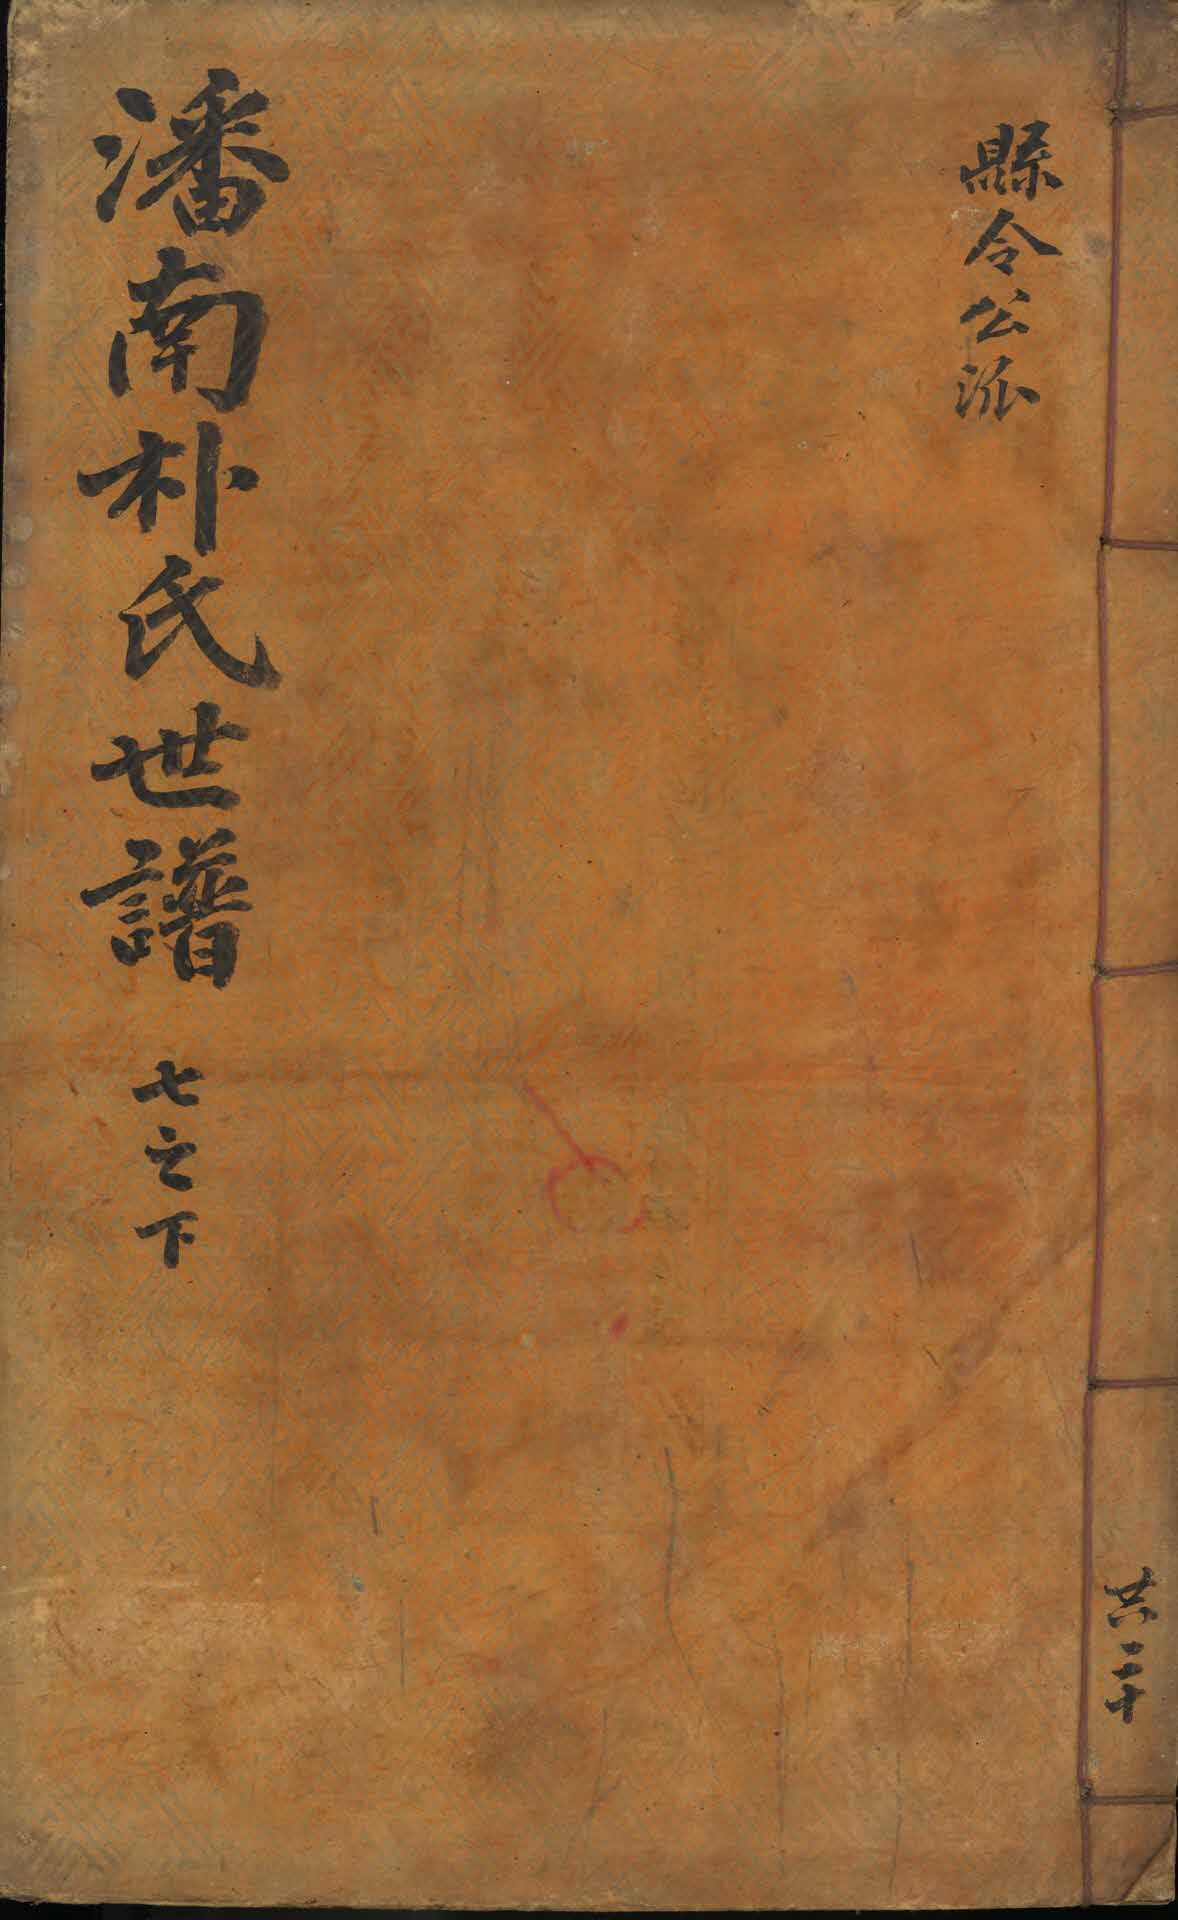 縣令公派
潘南朴氏世譜 七之下
共二十